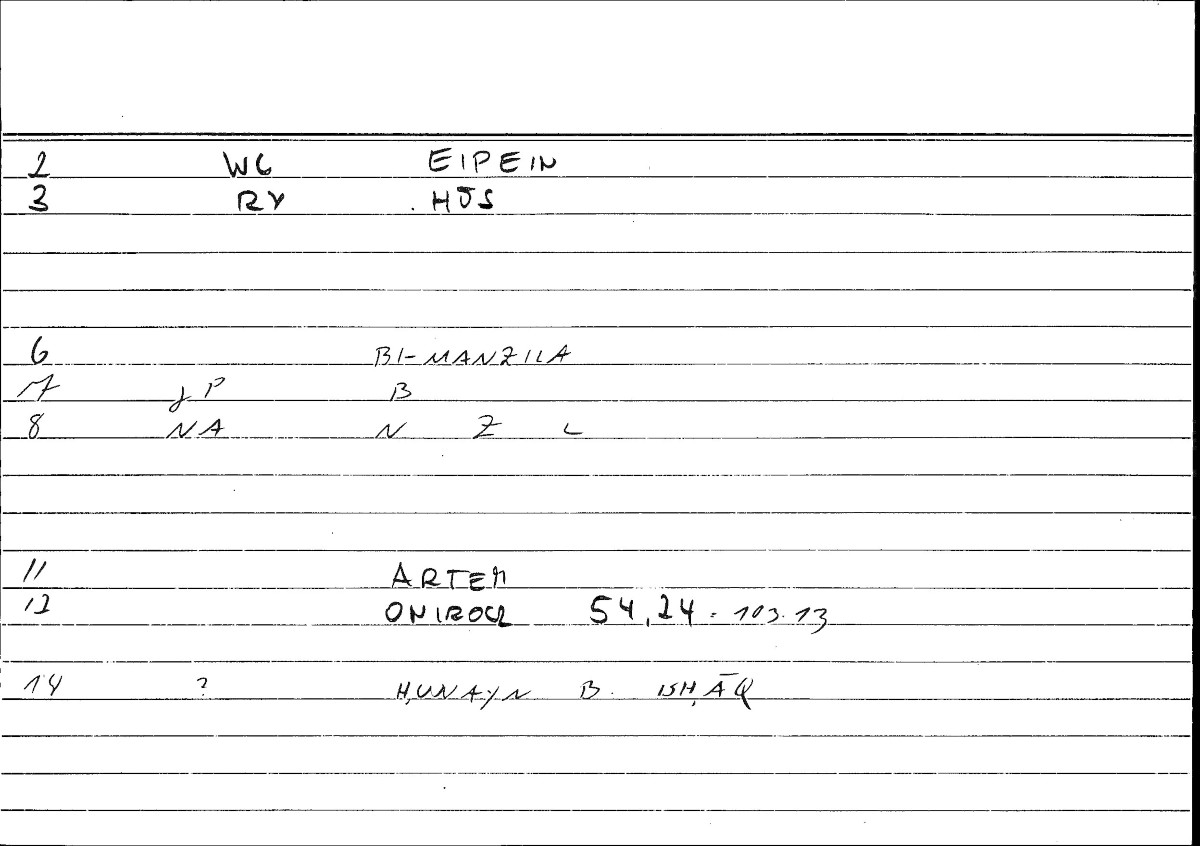 2 WG EIPEIN
3 RY HJS
6 BI-MANZILA
7 JP B
8 NA N Z L
11 ARTEM
12 ONIROCR 54,24 . 103.13
14 ? ḤUNAYN B. ISḤĀQ